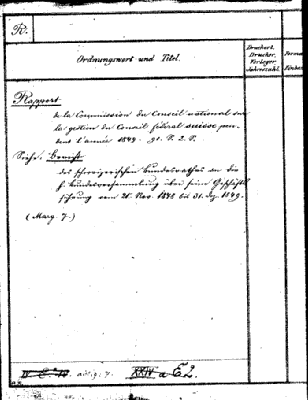 R.
Ordnungswort und Titel.
Druckort.
Drucker.
Verleger.
Jahrzahl.
Rapport
de la Commission du Conseil national sur
la gestion du Conseil fédéral suisse pen-
dant l'année 1849. gr. 8. 2. P.
Siehe: Bericht
des schweizerischen Bundesrathes an die
h. Bundesversammlung über seine Geschäfts-
führung vom 21. Nov. 1848 bis 31. Dez. 1849.
(Marg. 7.)
XXIV a E2.